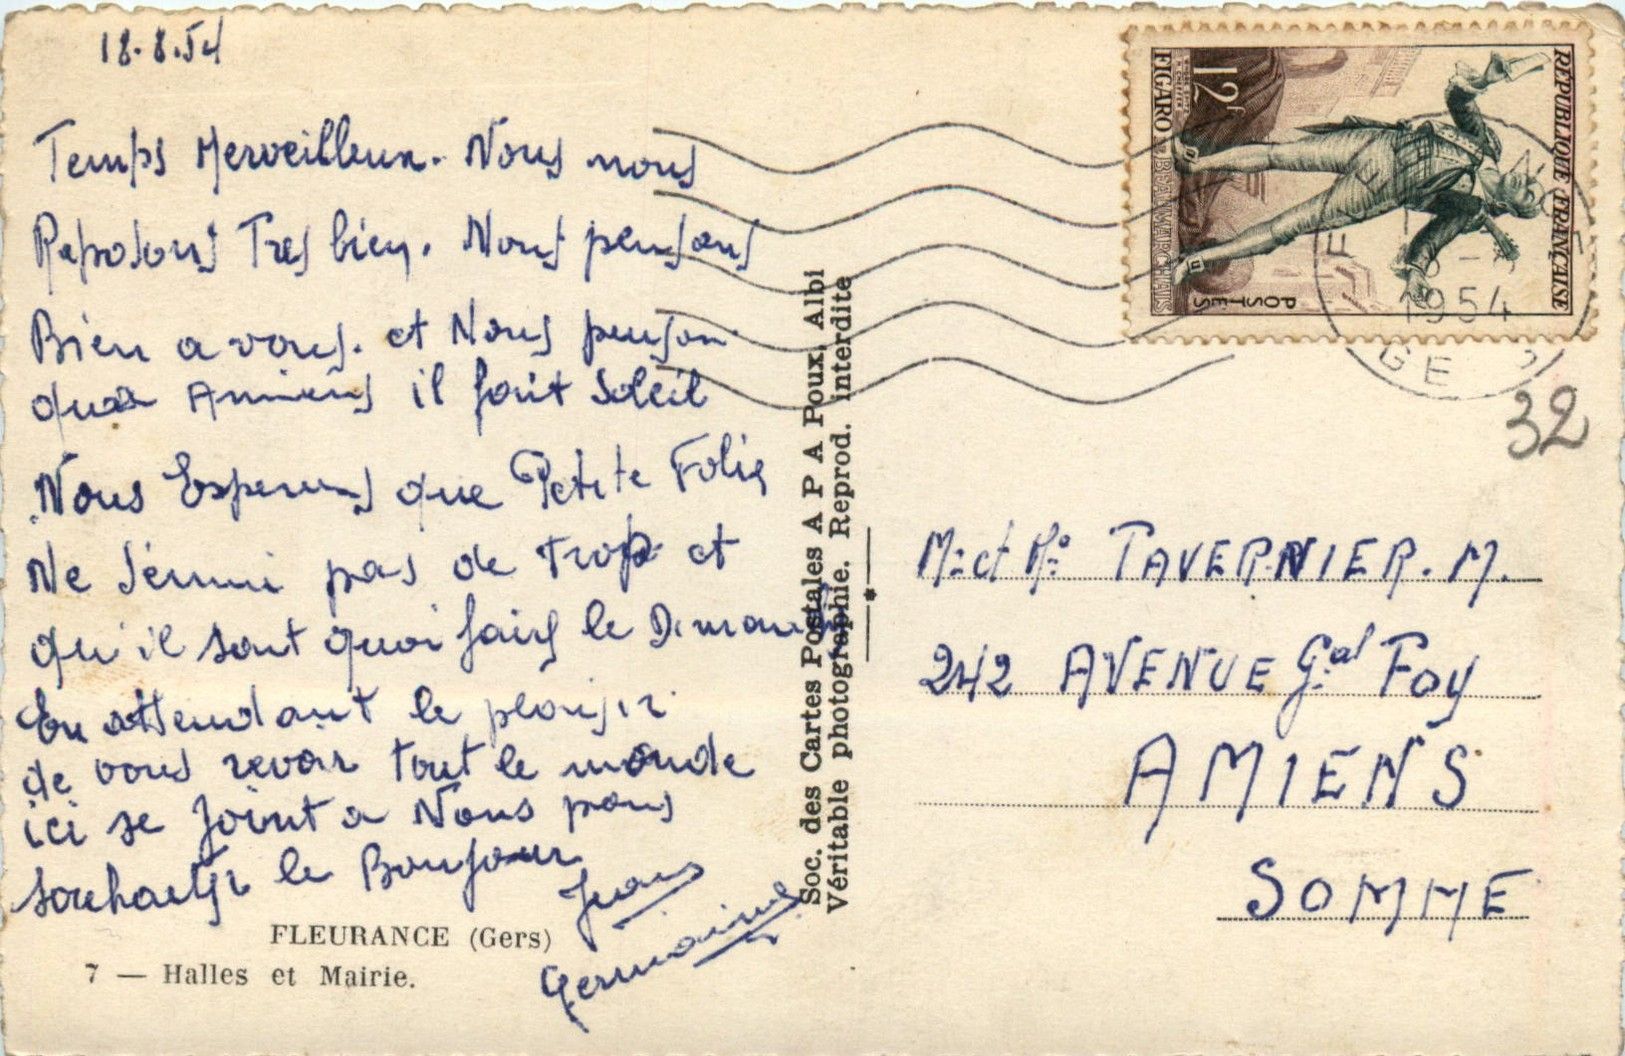 18.8.54
Temps Merveilleux. Nous nous
Reposons Tres bien. Nous pensons
Bien a vous. et Nous penson
qua Amiens il fait Soleil
Nous Esperons que Petite Folie
Ne s'ennui pas de trop et
qu'il sont quoi faire le Dimanche
En attendant le plaisir
de vous revoir tout le monde
ici se joint a Nous pour
souhaiter le Bonjour
Germaine
FLEURANCE (Gers)
7 — Halles et Mairie.
Soc. des Cartes Postales A P A Poux, Albi
Véritable photographie. Reprod. interdite
RÉPUBLIQUE FRANÇAISE
POSTES
12f
FIGARO - BEAUMARCHAIS
1954
GE
32
M: et Me TAVERNIER. M.
242 AVENUE Gal Foy
AMIENS
SOMME